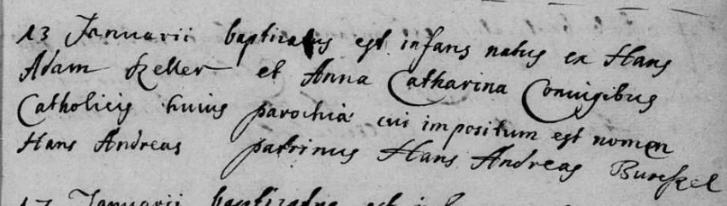 13 Januarii baptizatus est infans natus ex Hans
Adam Keller et Anna Catharina Coniugibus
Catholicis huius parochiæ cui impositum est nomen
Hans Andreas patrinus Hans Andreas
17 Januarii baptizatus est